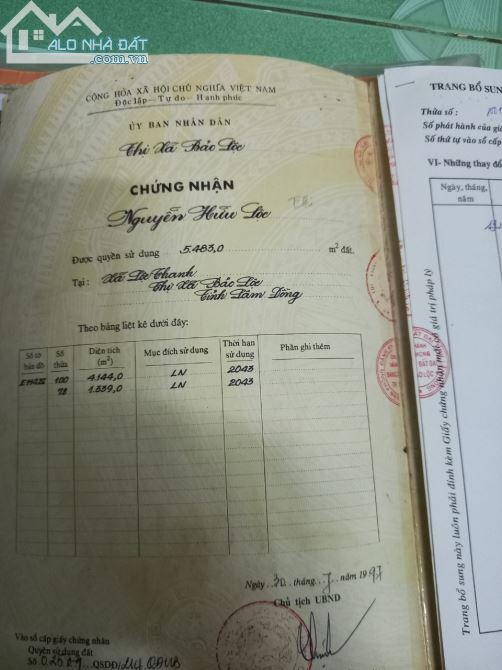 ALO NHÀ ĐẤT
.com.vn
CỘNG HÒA XÃ HỘI CHỦ NGHĨA VIỆT NAM
Độc lập - Tự do - Hạnh phúc
ỦY BAN NHÂN DÂN
Thị Xã Bảo Lộc
CHỨNG NHẬN
Nguyễn Hữu Lộc
Được quyền sử dụng 5.483,0 m² đất.
Tại : Xã Lộc Thanh
Thị Xã Bảo Lộc
Tỉnh Lâm Đồng
Theo bảng liệt kê dưới đây:
Số tờ bản đồ Số thửa Diện tích (m²) Mục đích sử dụng Thời hạn sử dụng Phần ghi thêm
100 4.144,0 LN 2043
78 1.339,0 LN 2043
Ngày 30 tháng 7 năm 1997
Chủ tịch UBND
Vào sổ cấp giấy chứng nhận
Quyền sử dụng đất
Số QSDĐ/
TRANG BỔ SUN
Thửa số :
Số phát hành của gi
Số thứ tự vào sổ cấp
VI- Những thay đổ
Ngày, tháng, năm
Trang bổ sung này luôn phải đính kèm Giấy chứng nhận mới có giá trị pháp lý